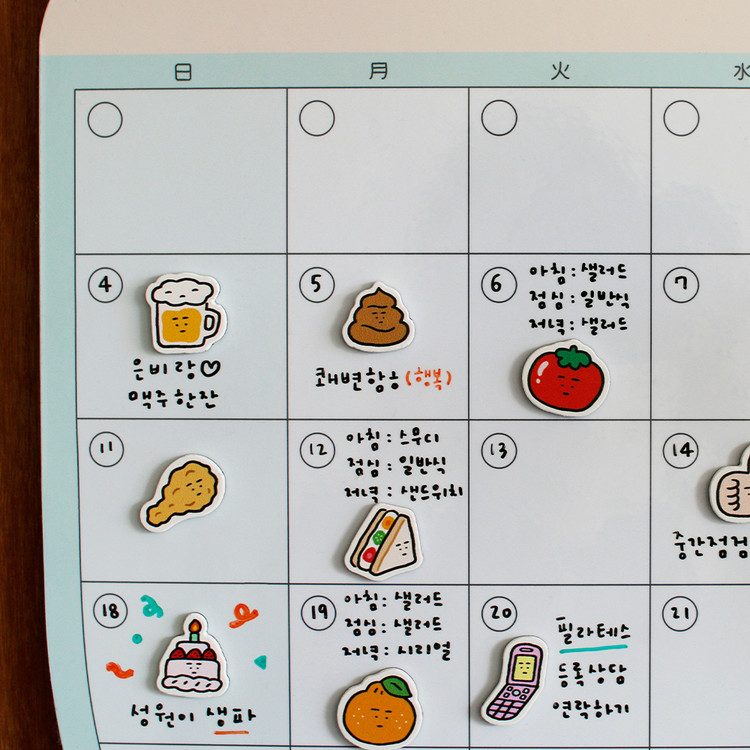 日 月 火 水
4
은비랑♡
맥주한잔
5
쾌변함ㅎ (행복)
6
아침 : 샐러드
점심 : 일반식
저녁 : 샐러드
7
11
12
아침 : 스무디
점심 : 일반식
저녁 : 샌드위치
13
14
중간점검
18
성원이 생파
19
아침 : 샐러드
점심 : 샐러드
저녁 : 시리얼
20
필라테스
등록상담
연락하기
21